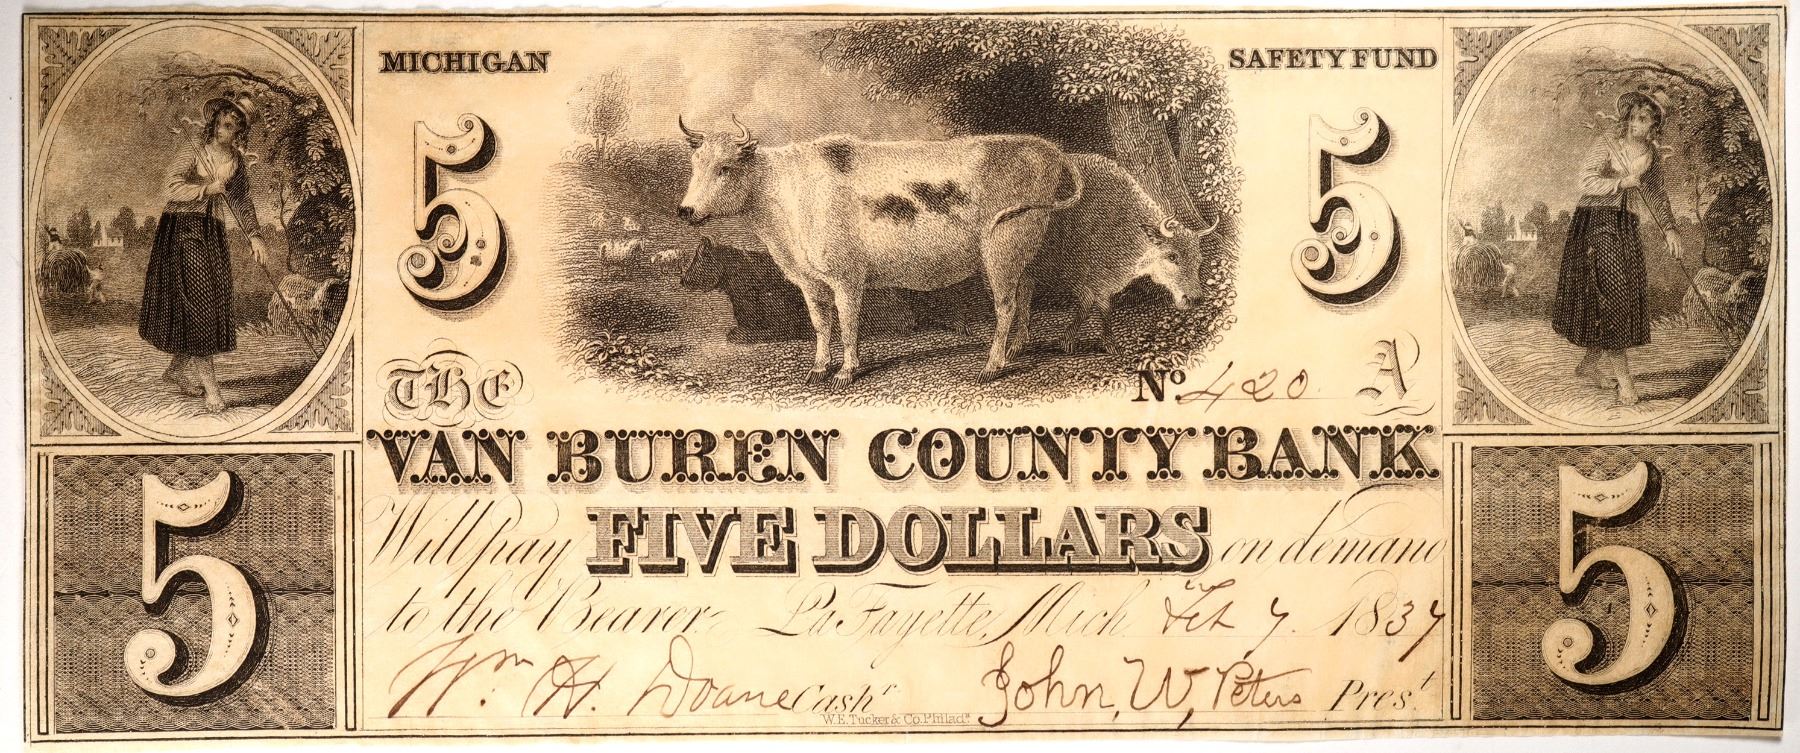 MICHIGAN SAFETY FUND
5 5
The No. 420 A
VAN BUREN COUNTY BANK
Will pay FIVE DOLLARS on demand
to the Bearer La Fayette, Mich. Feb 7 1837
Wm. H. Doane Cashr. John, W, Peters Prest.
W.E. Tucker & Co. Philada.
5 5